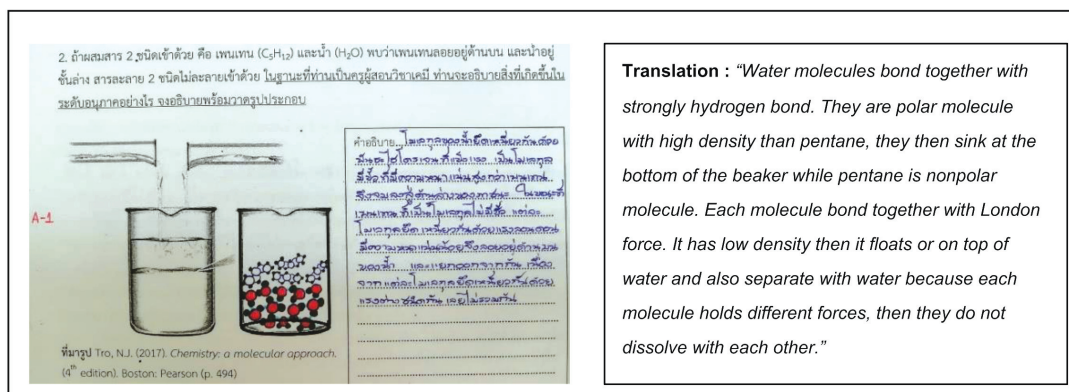 2. ถ้าผสมสาร 2 ชนิดเข้าด้วย คือ เพนเทน (C₅H₁₂) และน้ำ (H₂O) พบว่าเพนเทนลอยอยู่ด้านบน และน้ำอยู่
ชั้นล่าง สารละลาย 2 ชนิดไม่ละลายเข้าด้วย ในฐานะที่ท่านเป็นครูผู้สอนวิชาเคมี ท่านจะอธิบายสิ่งที่เกิดขึ้นใน
ระดับอนุภาคอย่างไร จงอธิบายพร้อมวาดรูปประกอบ
A-1
คำอธิบาย โมเลกุลของน้ำยึดเหนี่ยวกันด้วย
พันธะไฮโดรเจนที่แข็งแรง เป็นโมเลกุล
มีขั้วที่มีความหนาแน่นสูงกว่าเพนเทน
จึงจมลงสู่ด้านล่างของภาชนะ ในขณะที่
เพนเทนที่เป็นโมเลกุลไม่มีขั้ว แต่ละ
โมเลกุลยึดเหนี่ยวกันด้วยแรงลอนดอน
มีความหนาแน่นน้อยจึงลอยอยู่ด้านบน
ของน้ำ และแยกออกจากกัน เนื่อง
จากแต่ละโมเลกุลยึดเหนี่ยวกันด้วย
แรงต่างชนิดกัน เลยไม่รวมกัน
ที่มารูป Tro, N.J. (2017). Chemistry: a molecular approach.
(4th edition). Boston: Pearson (p. 494)
Translation : “Water molecules bond together with
strongly hydrogen bond. They are polar molecule
with high density than pentane, they then sink at the
bottom of the beaker while pentane is nonpolar
molecule. Each molecule bond together with London
force. It has low density then it floats or on top of
water and also separate with water because each
molecule holds different forces, then they do not
dissolve with each other.”